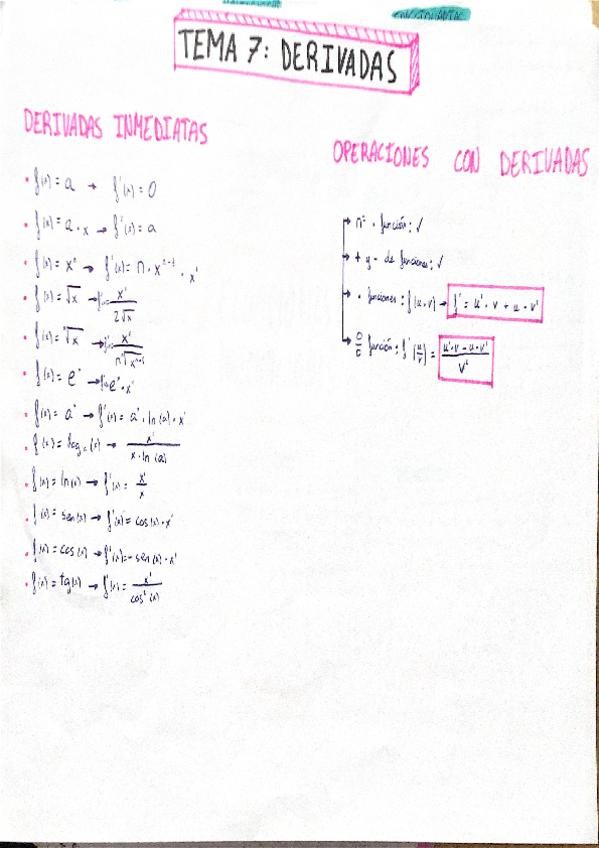 TEMA 7: DERIVADAS
DERIVADAS INMEDIATAS
• f(x) = a → f'(x) = 0
• f(x) = a · x → f'(x) = a
• f(x) = xⁿ → f'(x) = n · xⁿ⁻¹ · x'
• f(x) = √x → f' = x' / 2√x
• f(x) = ⁿ√x → f' = x' / n ⁿ√xⁿ⁻¹
• f(x) = eˣ → f' = eˣ · x'
• f(x) = aˣ → f'(x) = aˣ · ln(a) · x'
• f(x) = logₐ(x) → x' / x · ln(a)
• f(x) = ln(x) → f'(x) = x' / x
• f(x) = sen(x) → f'(x) = cos(x) · x'
• f(x) = cos(x) → f'(x) = - sen(x) · x'
• f(x) = tg(x) → f'(x) = x' / cos²(x)
OPERACIONES CON DERIVADAS
→ nº · función: ✓
→ + y - de funciones: ✓
→ · funciones: f(u·v) → f' = u' · v + u · v'
→ función: f'(u/v) = u'·v - u·v' / v²